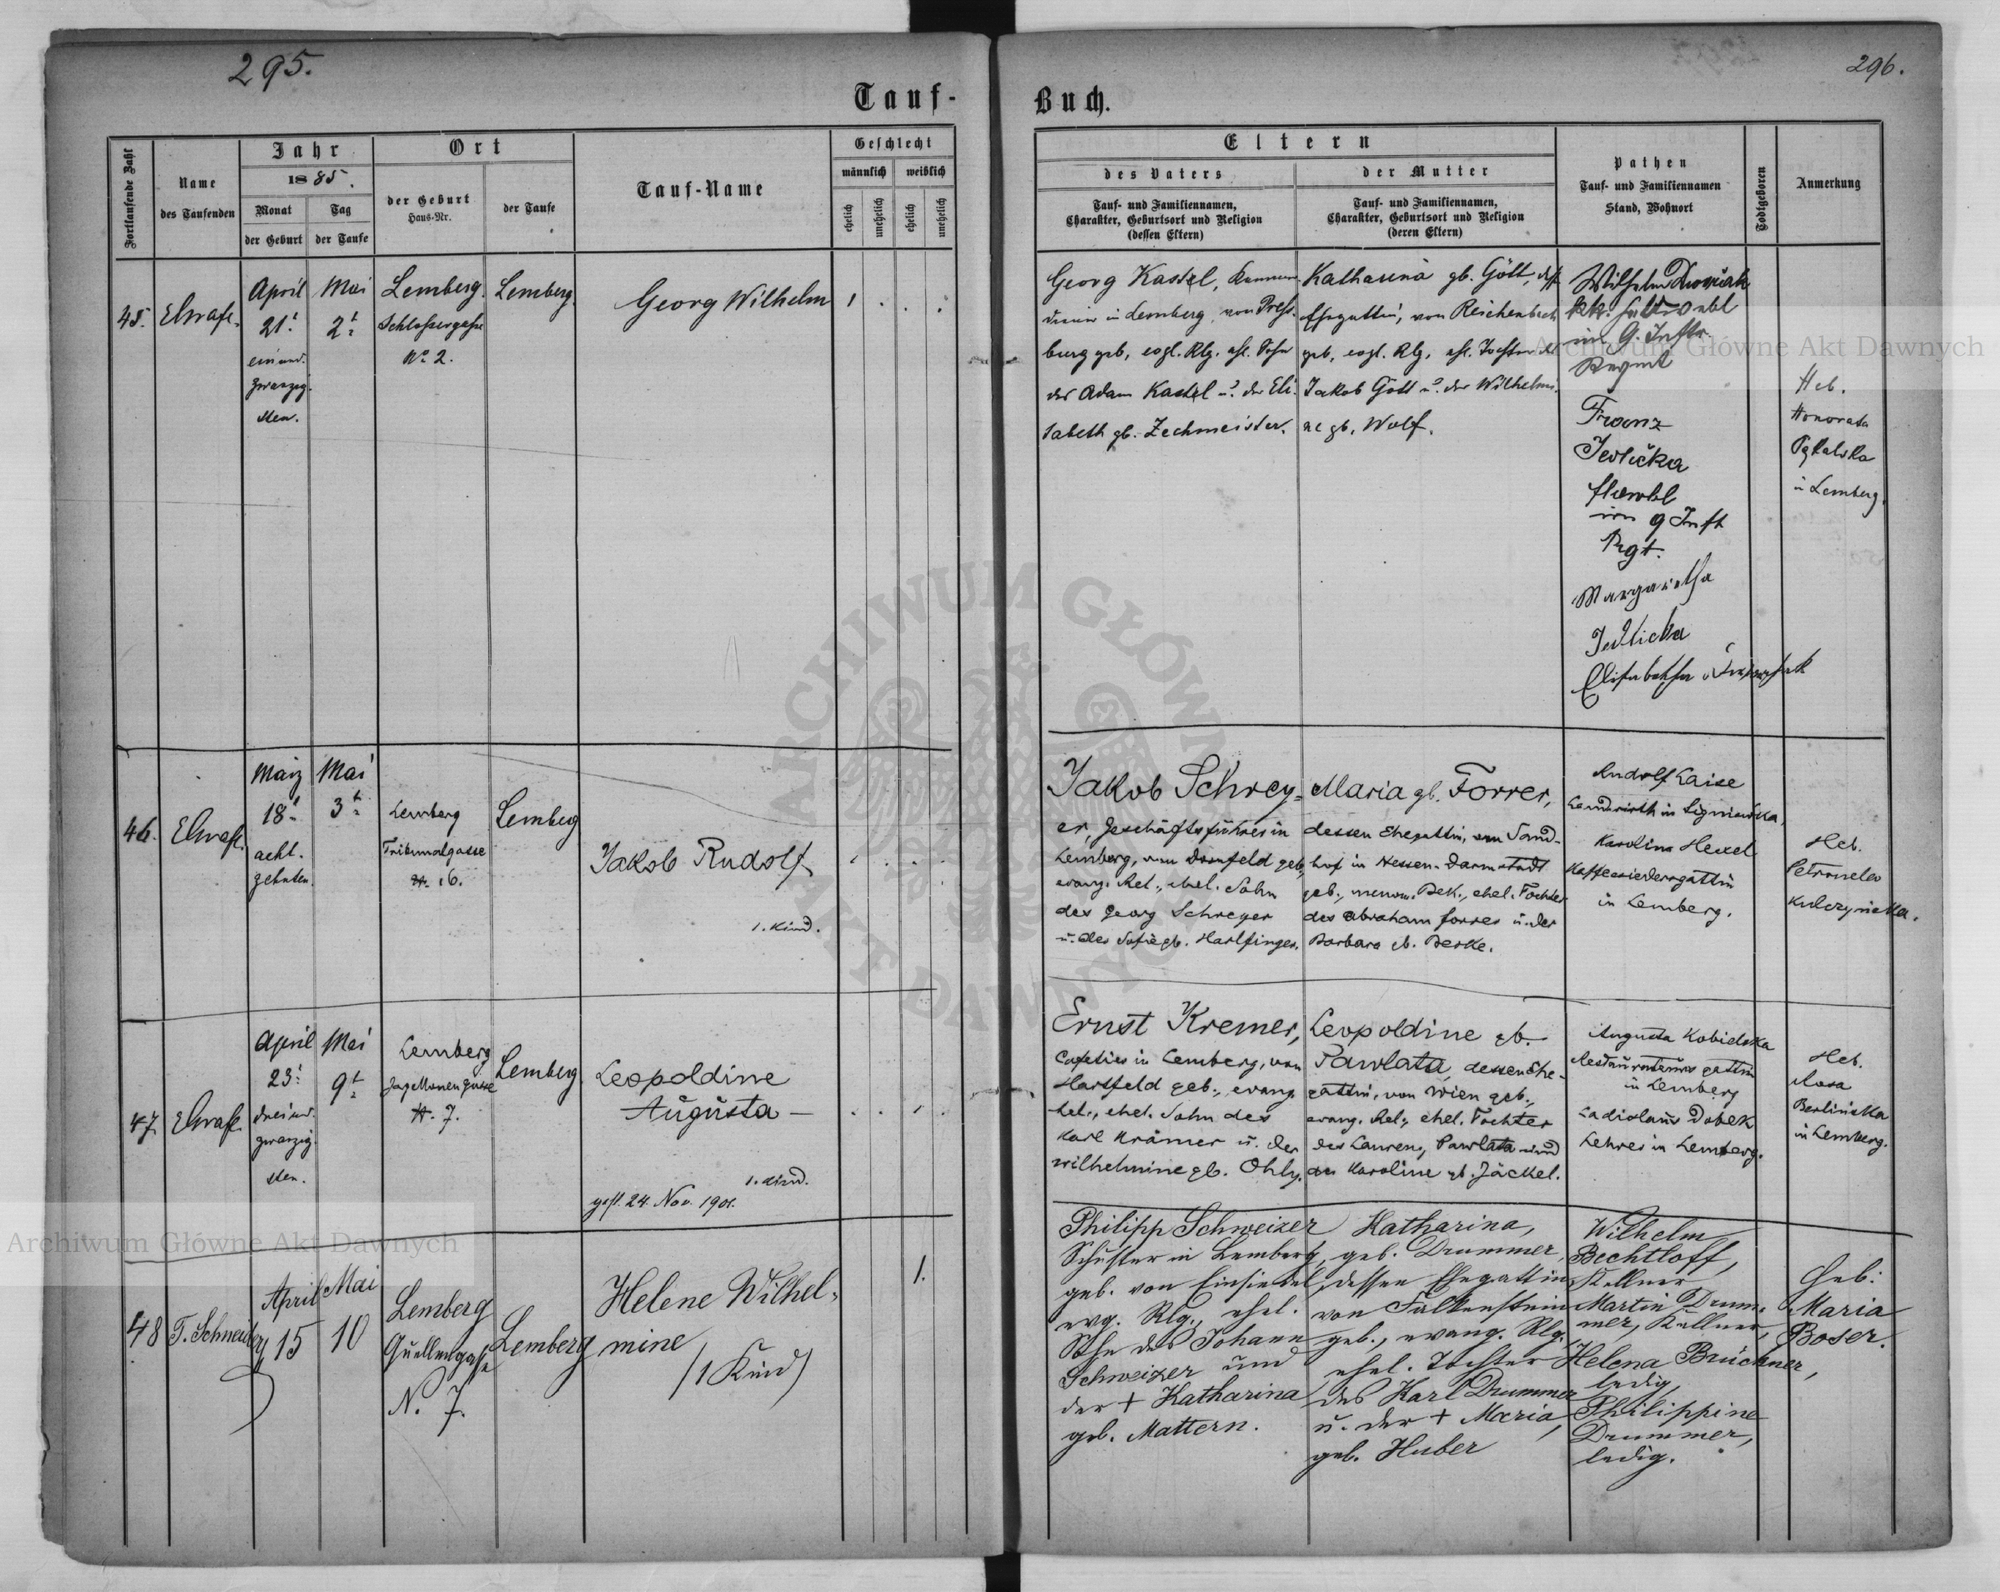 295.
296.
Tauf-
Buch.
Fortlaufende Zahl
Name
des Taufenden
Jahr
1885.
Monat
der Geburt
Tag
der Taufe
Ort
der Geburt
Haus-Nr.
der Taufe
Tauf-Name
Geschlecht
männlich
weiblich
ehelich
unehelich
ehelich
unehelich
Eltern
des Vaters
Tauf- und Familiennamen,
Charakter, Geburtsort und Religion
(dessen Eltern)
der Mutter
Tauf- und Familiennamen,
Charakter, Geburtsort und Religion
(deren Eltern)
Pathen
Tauf- und Familiennamen
Stand, Wohnort
Todtgeboren
Anmerkung
45.
April
21.
ein und
zwanzig-
sten.
Mai
2.
Lemberg.
Schlossergasse
No 2.
Lemberg.
Georg Wilhelm
1
Georg Kastel,
in Lemberg, von Press-
burg geb, evgl. Rlg. ehl. Sohn
des Adam Kastel u. der Eli-
sabeth gb. Zechmeister.
Katharina gb. Gött,
Ehegattin, von Reichenbach
geb, evgl. Rlg, ehl. Tochter des
Jakob Gött u. der Wilhelmi-
ne gb. Wolf.
Wilhelm
im 9. Inftr.
Regmt
Franz
Jedlička
im 9 Inft
Rgt.
Margaretha
Jedlicka
Elisabetha
Heb.
Honorata
Pękalska
in Lemberg.
46.
März
18.
acht-
zehnten.
Mai
3.
Lemberg
Tribunalgasse
16.
Lemberg
Jakob Rudolf
1. Kind.
Jakob Schrey-
er, Geschäftsführer in
Lemberg, von Dornfeld geb,
evang. Rel., ehel. Sohn
des Georg Schreyer
u. der Sofie gb. Harlfinger.
Maria gb. Forrer,
dessen Ehegattin, von Sand-
hof in Hessen-Darmstadt
geb., menon. Bek., ehel. Tochter
des Abraham Forrer u. der
Barbara gb. Berke.
Rudolf Laise
Landwirth in
Karolina Hexel
Kaffeesiedersgattin
in Lemberg.
Heb.
Petronela
Kulczynska.
47
April
23.
drei und
zwanzig-
sten.
Mai
9.
Lemberg
Jagellonengasse
7.
Lemberg
Leopoldine
Augusta —
1. Kind.
gest. 24. Nov. 1901.
Ernst Kremer,
Cafetier in Lemberg, von
Hartfeld geb., evang.
Rel., ehel. Sohn des
Karl Krämer u. der
Wilhelmine gb. Ohly.
Leopoldine gb.
Pawlata, dessen Ehe-
gattin, von Wien geb.,
evang. Rel., ehel. Tochter
des Laurenz Pawlata und
der Karoline gb. Jäckel.
Augusta Kobielska
Restaurateurs gattin
in Lemberg
Ladislaus Dobek
Lehrer in Lemberg.
Heb.
Rosa
Berlinska
in Lemberg.
48
T. Schneider
April
15
Mai
10
Lemberg
Quellengasse
N. 7.
Lemberg
Helene Wilhel-
mine
(1 Kind)
1.
Philipp Schweizer
Schuster in Lemberg,
geb. von Einsiedel,
evg. Rlg., ehel.
Sohn des Johann
Schweizer und
der + Katharina
geb. Mattern.
Katharina,
geb. Drummer,
dessen Ehegattin
von Falkenstein
geb., evang. Rlg.,
ehel. Tochter
des Karl Drummer
u. der + Maria,
geb. Huber
Wilhelm
Bechtloff,
Kellner
Martin Drum-
mer, Kellner,
Helena Brückner,
ledig,
Philippine
Drummer,
ledig.
Geb:
Maria
Boser.
Archiwum Główne Akt Dawnych
Archiwum Główne Akt Dawnych
ARCHIWUM GŁÓWNE AKT DAWNYCH